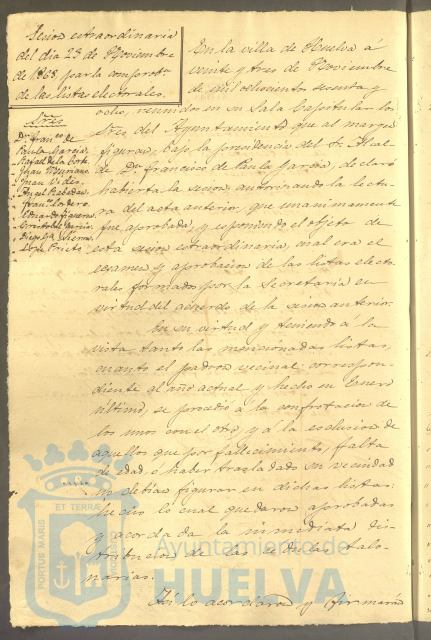 Sesion extraordinaria
del dia 23 de Noviembre
de 1868 para la comprobn.
de las listas electorales.
Sres.
Dn. Franco. de
Paula Garcia.
Rafael de la Corte.
Juan Vides.
Angel Rabadan.
Franco. Cordero.
Eduardo Figueroa.
Cristobal Garcia.
Diego Ga. Sierra.
Lope Prieto.
En la villa de Huelva á
veinte y tres de Noviembre
de mil ochocientos sesenta y
ocho, reunidos en su Sala Capitular los
Sres del Ayuntamiento que al margen
figuran, bajo la presidencia del Sr. Alcal-
de Dn. Francisco de Paula Garcia, declaró
habierta la sesion, autorizando la lectu-
ra del acta anterior, que unanimamente
fue aprobada, y esponiendo el objeto de
esta sesion estraordinaria, cual era el
ecsamen y aprobacion de las listas electo-
rales formadas por la Secretaria en
virtud del acuerdo de la sesion anterior.
En su virtud y teniendo á la
vista tanto las mencionadas listas,
cuanto el padron vecinal correspon-
diente al año actual y hecho en Enero
último, se procedió á la confrotacion de
los unos con el otro y á la esclusion de
aquellos que por fallecimiento, falta
de edad ó haber trasladado su vecindad
no debian figurar en dichas listas:
hecho lo cual quedaron aprobadas
y acordada la inmediata dis-
tribucion de las cedulas talo-
narias.
Asi lo acordaron y firmaron
PORTUS MARIS ET TERRAE CUSTODIA
Ayuntamiento de
HUELVA